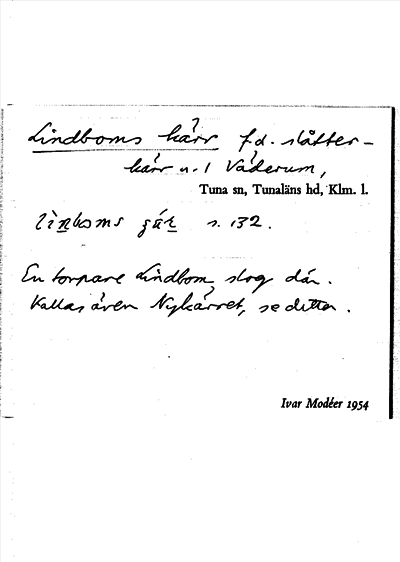 Lindboms kärr f.d. slåtter-
kärr u. l Väderum,
Tuna sn, Tunaläns hd, Klm. l.
s. 132.
En torpare Lindbom slog där.
Kallas även Nykärret, se detta.
Ivar Modéer 1954